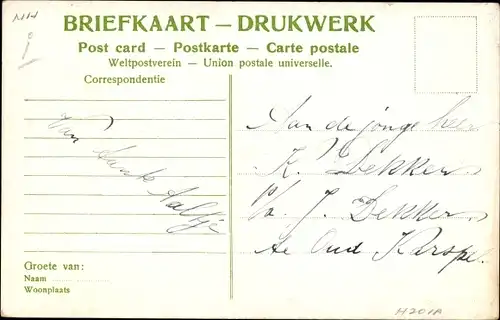 NHW
BRIEFKAART — DRUKWERK
Post card — Postkarte — Carte postale
Weltpostverein — Union postale universelle.
Correspondentie
Van
Tante
Aaltje
Aan de jonge heer
K. Dekker
p/a. J. Dekker
te Oud Karspel.
Groete van:
Naam
Woonplaats
H201A